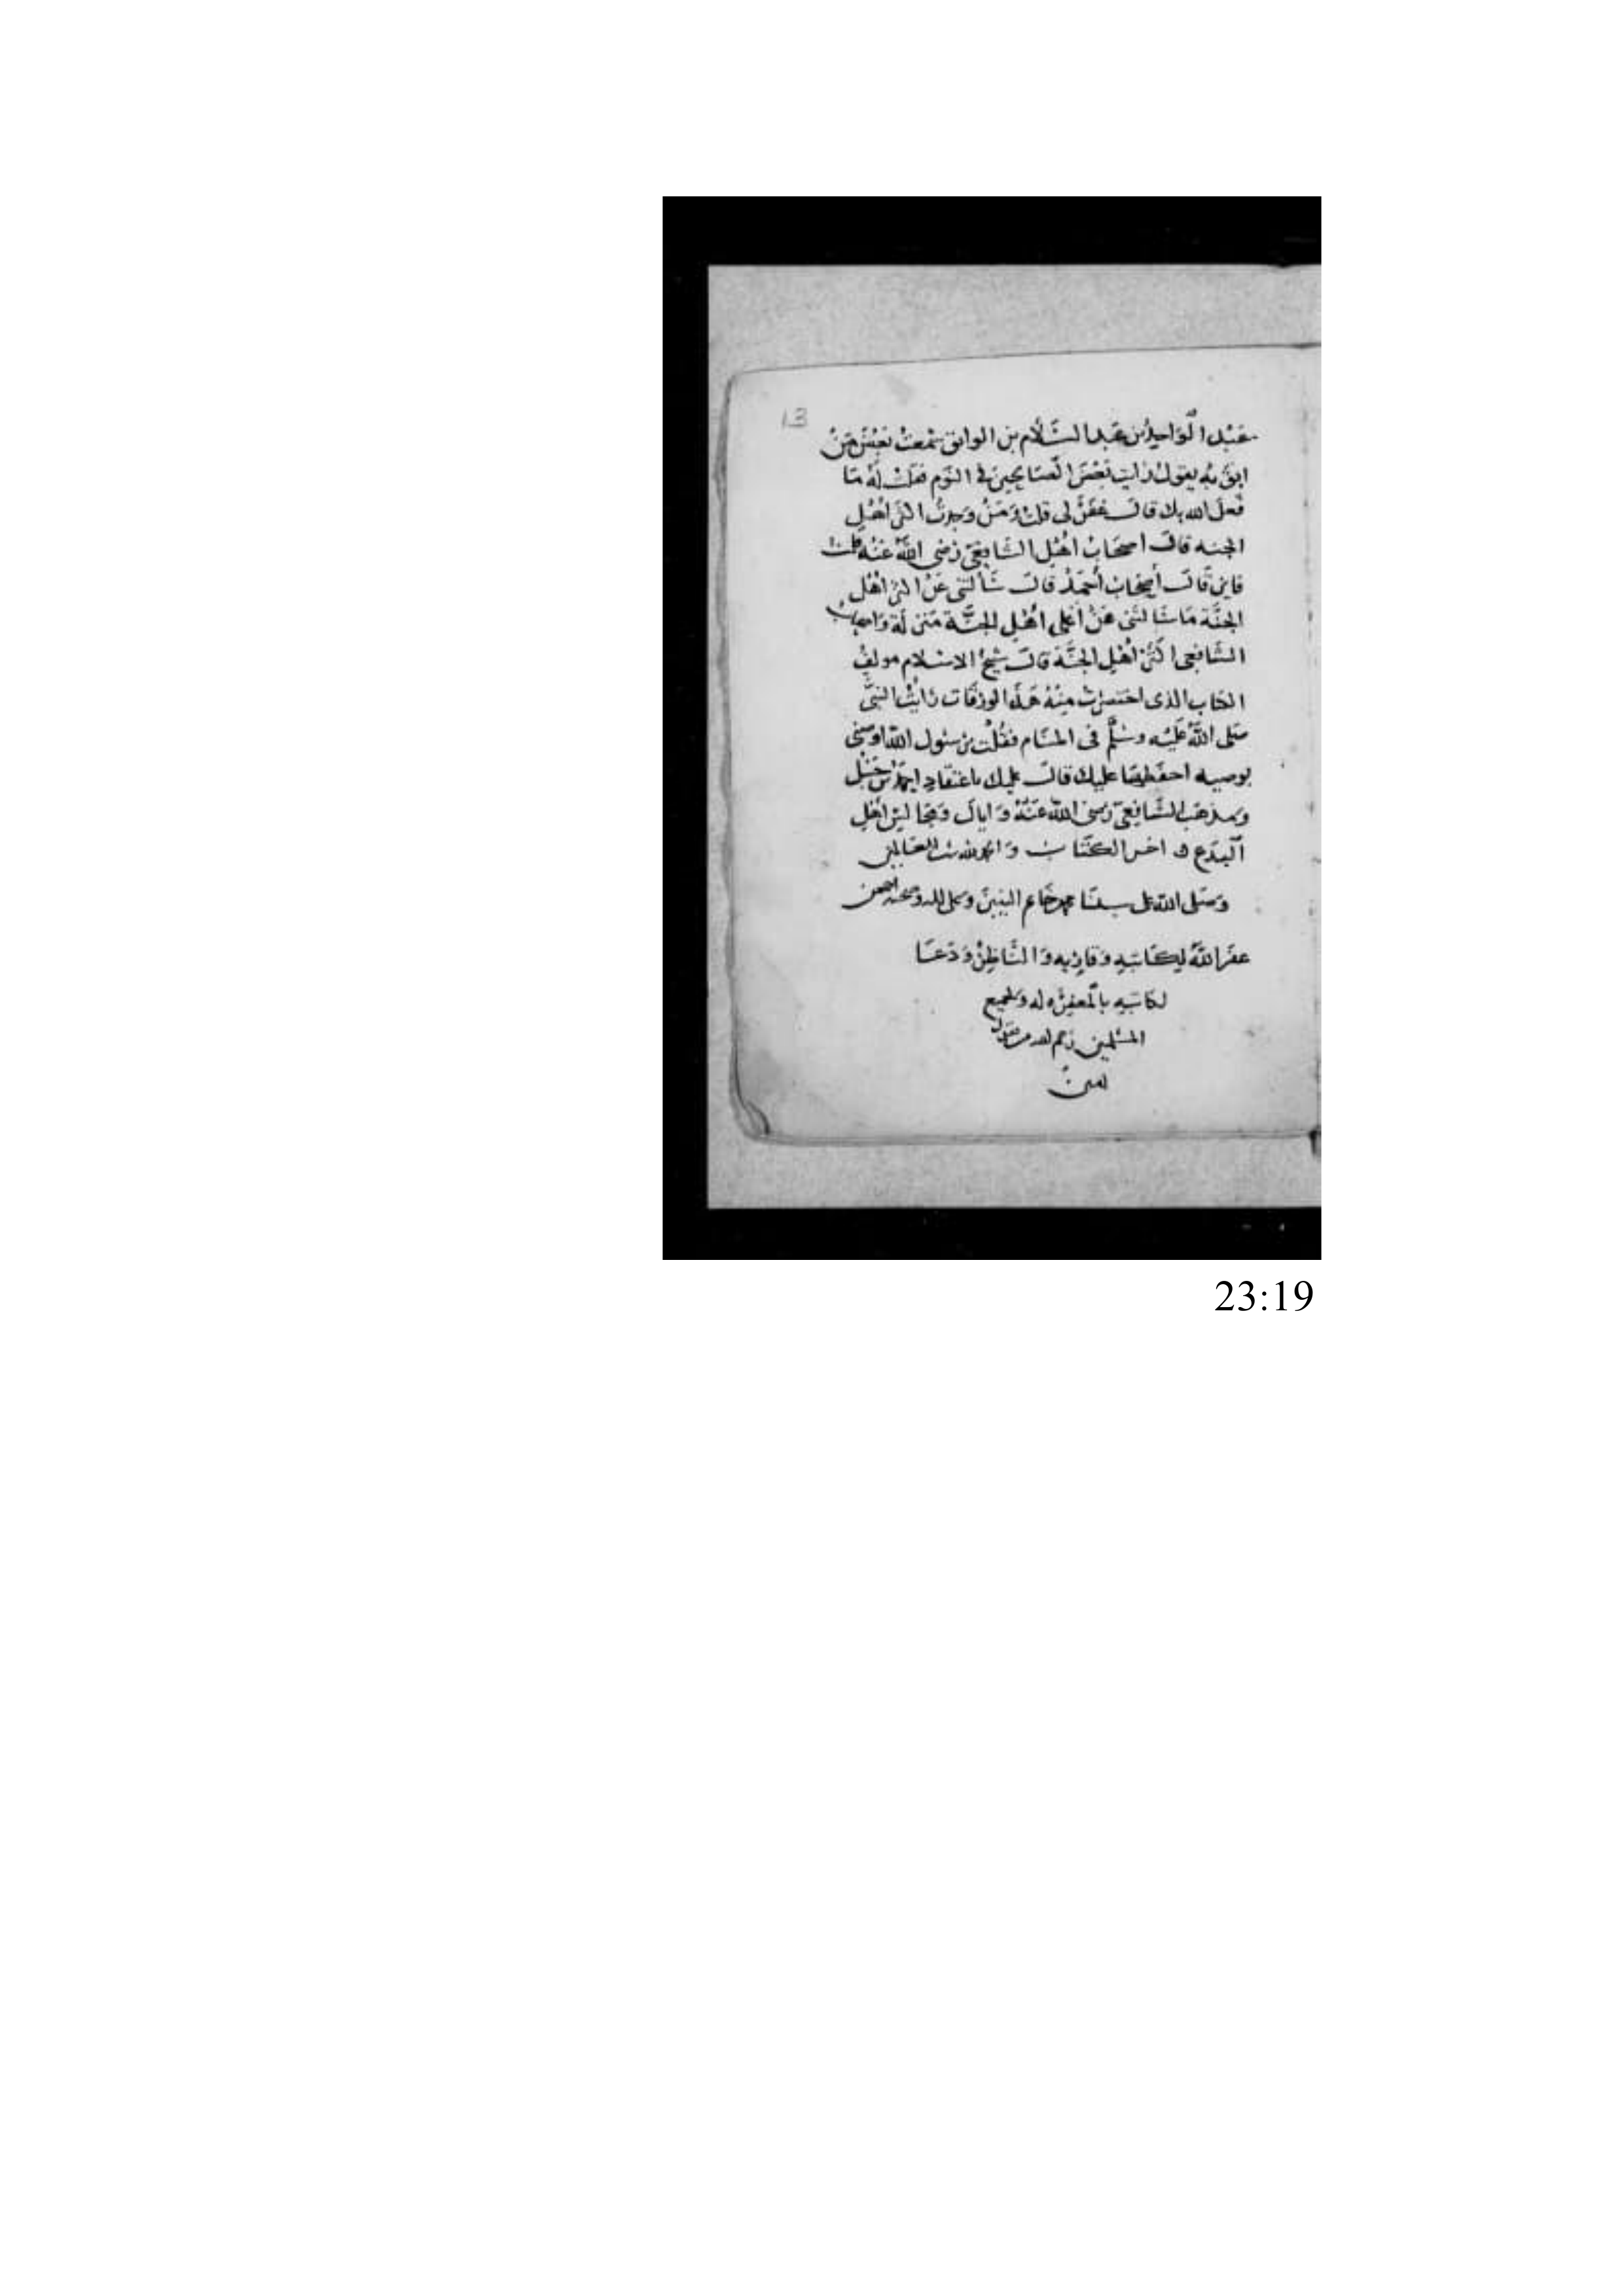 13
عَبْد الوَاحِد بن عَبد السَّلام بن الواثق سَمعت بَعْض مَنْ
اثق به يقول رايت بَعْضَ الصَّالحِينَ في النَوم فقلت لَهُ مَا
فَعلَ الله بك قالَ غفَر لى قلت وَمَنْ وَجدتَ اكثر اهْل
الجنه قالَ اصحَابُ الشَّافِعَى رَضى اللَّهُ عَنْهُ قلت
فاين قَالَ أصْحَاب أحْمَدْ قالَ سَأَلتنى عَنْ اكثر اهْل
الجنَّة مَا سَالتَنى عَنْ أعْلى اهْل الجنَّة مَنزلَة وَاصحاب
الشَّافعى اكثر اهْل الجَنَّة قَالَ شيخُ الاسْلام مولفُ
الكتاب الذى اختصرتُ مِنْهُ هَذِه الورَقَات رَايْتُ النبىَّ
صَلى اللَّهُ عَليْه وسَلَّم فى المنَام فقُلْت يرسُول اللَّه اوصنى
بوصيه احفظهَا عليك قالَ عليك باعْتقَادِ احْمَد بن حَنْبَل
وَمذهَب الشَّافِعىّ رَضى اللَّه عَنْهُ وَاياكَ وَمجَالسَ اهْلِ
البدَع اخر الكتَاب وَالحمد لله رب العَالمين
وَصَلى الله على سيدنَا محمد خَاتم النبيينَ وَعلى اله وصحبه اجمعين
غفرَ اللَّهُ لِكَاتبِهِ وَقارِيه وَالنَّاظِرْ وَدَعَا
لكَاتبِهِ بالمغفرَه له ولجميع
المسْلمين رَحم الله من يقول
امين
23:19